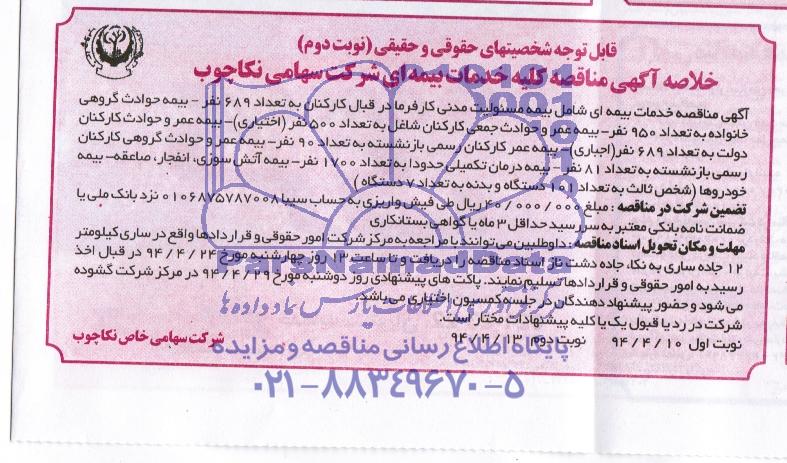 قابل توجه شخصیتهای حقوقی و حقیقی (نوبت دوم)
خلاصه آگهی مناقصه کلیه خدمات بیمه ای شرکت سهامی نکاچوب
آگهی مناقصه خدمات بیمه ای شامل بیمه مسئولیت مدنی کارفرما در قبال کارکنان به تعداد ۶۸۹ نفر - بیمه حوادث گروهی
خانواده به تعداد ۹۵۰ نفر- بیمه عمر و حوادث جمعی کارکنان شاغل به تعداد ۵۰۰ نفر (اختیاری)- بیمه عمر و حوادث کارکنان
دولت به تعداد ۶۸۹ نفر(اجباری)- بیمه عمر کارکنان رسمی بازنشسته به تعداد ۹۰ نفر- بیمه عمر و حوادث گروهی کارکنان
رسمی بازنشسته به تعداد ۸۱ نفر- بیمه درمان تکمیلی حدودا به تعداد ۱۷۰۰ نفر- بیمه آتش سوزی، انفجار، صاعقه- بیمه
خودروها (شخص ثالث به تعداد ۱۰۱ دستگاه و بدنه به تعداد ۷ دستگاه)
تضمین شرکت در مناقصه : مبلغ ۴۰/۰۰۰/۰۰۰ ریال طی فیش واریزی به حساب سیبا ۰۱۰۶۸۷۵۷۸۷۰۰۸ نزد بانک ملی یا
ضمانت نامه بانکی معتبر به سررسید حداقل ۳ ماه یا گواهی بستانکاری
مهلت و مکان تحویل اسناد مناقصه : داوطلبین می توانند با مراجعه به مرکز شرکت امور حقوقی و قراردادها واقع در ساری کیلومتر
۱۲ جاده ساری به نکا، جاده دشت ناز اسناد مناقصه را دریافت و تا ساعت ۱۳ روز چهارشنبه مورخ ۹۴/۴/۲۴ در قبال اخذ
رسید به امور حقوقی و قراردادها تسلیم نمایند. پاکت های پیشنهادی روز دوشنبه مورخ ۹۴/۴/۲۹ در مرکز شرکت گشوده
می شود و حضور پیشنهاد دهندگان در جلسه کمسیون اختیاری می باشد.
شرکت در رد یا قبول یک یا کلیه پیشنهادات مختار است.
نوبت اول ۹۴/۴/۱۰ نوبت دوم: ۹۴/۴/۱۳
شرکت سهامی خاص نکاچوب
ParsNamadData
پایگاه اطلاع رسانی مناقصه و مزایده
۰۲۱-۸۸۳۴۹۶۷۰-۵